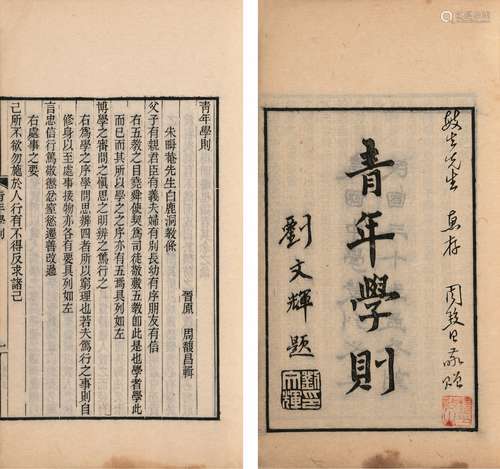 先生 惠存
敬贈
青年學則
劉文輝題
青年學則
晉原 周馥昌輯
朱晦菴先生白鹿洞教條
父子有親君臣有義夫婦有別長幼有序朋友有信
右五教之目堯舜使契爲司徒敬敷五教卽此是也學者學此
而已而其所以學之之序亦有五焉具列如左
博學之審問之愼思之明辨之篤行之
右爲學之序學問思辨四者所以窮理也若夫篤行之事則自
修身以至處事接物亦各有要具列如左
言忠信行篤敬懲忿窒慾遷善改過
右處事之要
己所不欲勿施於人行有不得反求諸己
青年學則